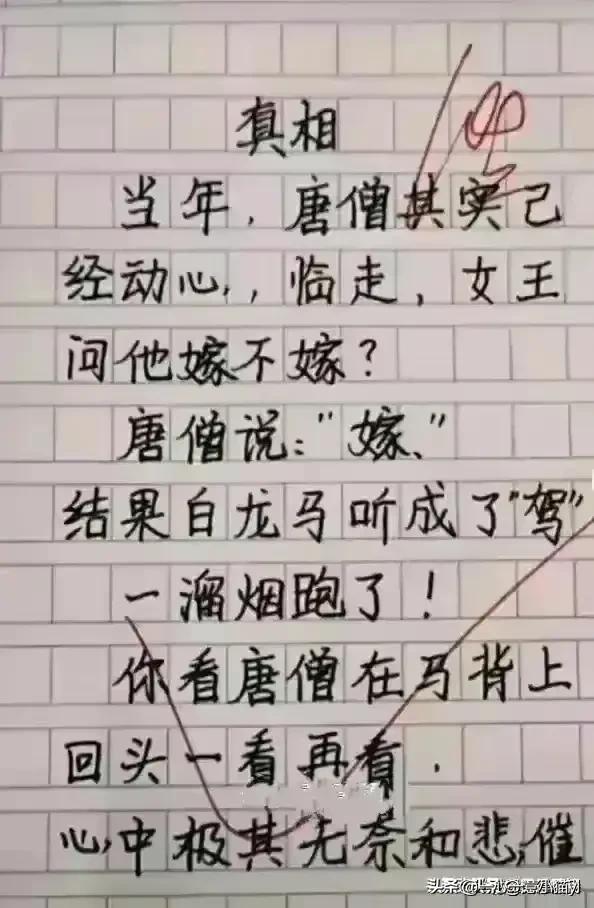 真相
当年，唐僧其实己
经动心，，临走，女王
问他嫁不嫁？
唐僧说："嫁、"
结果白龙马听成了"驾"
一溜烟跑了！
你看唐僧在马背上
回头一看再看．
心中极其无奈和悲催